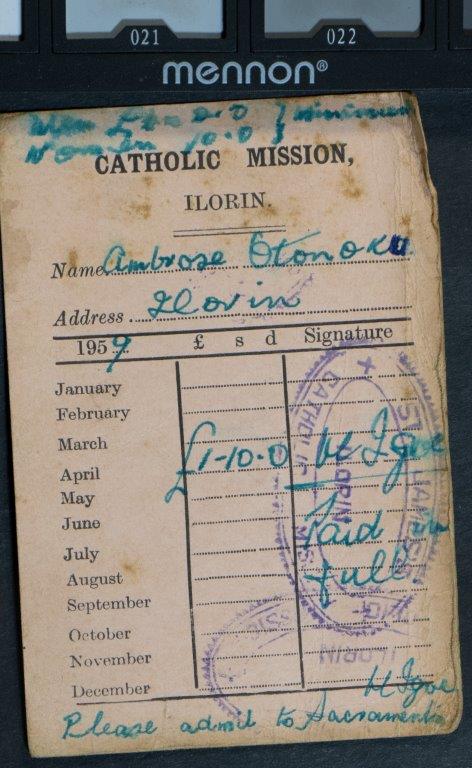 021 022
mennon®
Men £ 2.0 minimum
Women 10.0
CATHOLIC MISSION,
ILORIN.
Name Ambrose Otonoku
Address Ilorin
1959 £ s d Signature
January
February
March
April £1-10-0 H Igoe
May
June Paid in
July
August full
September
October
November
December H Igoe
Please admit to Sacraments